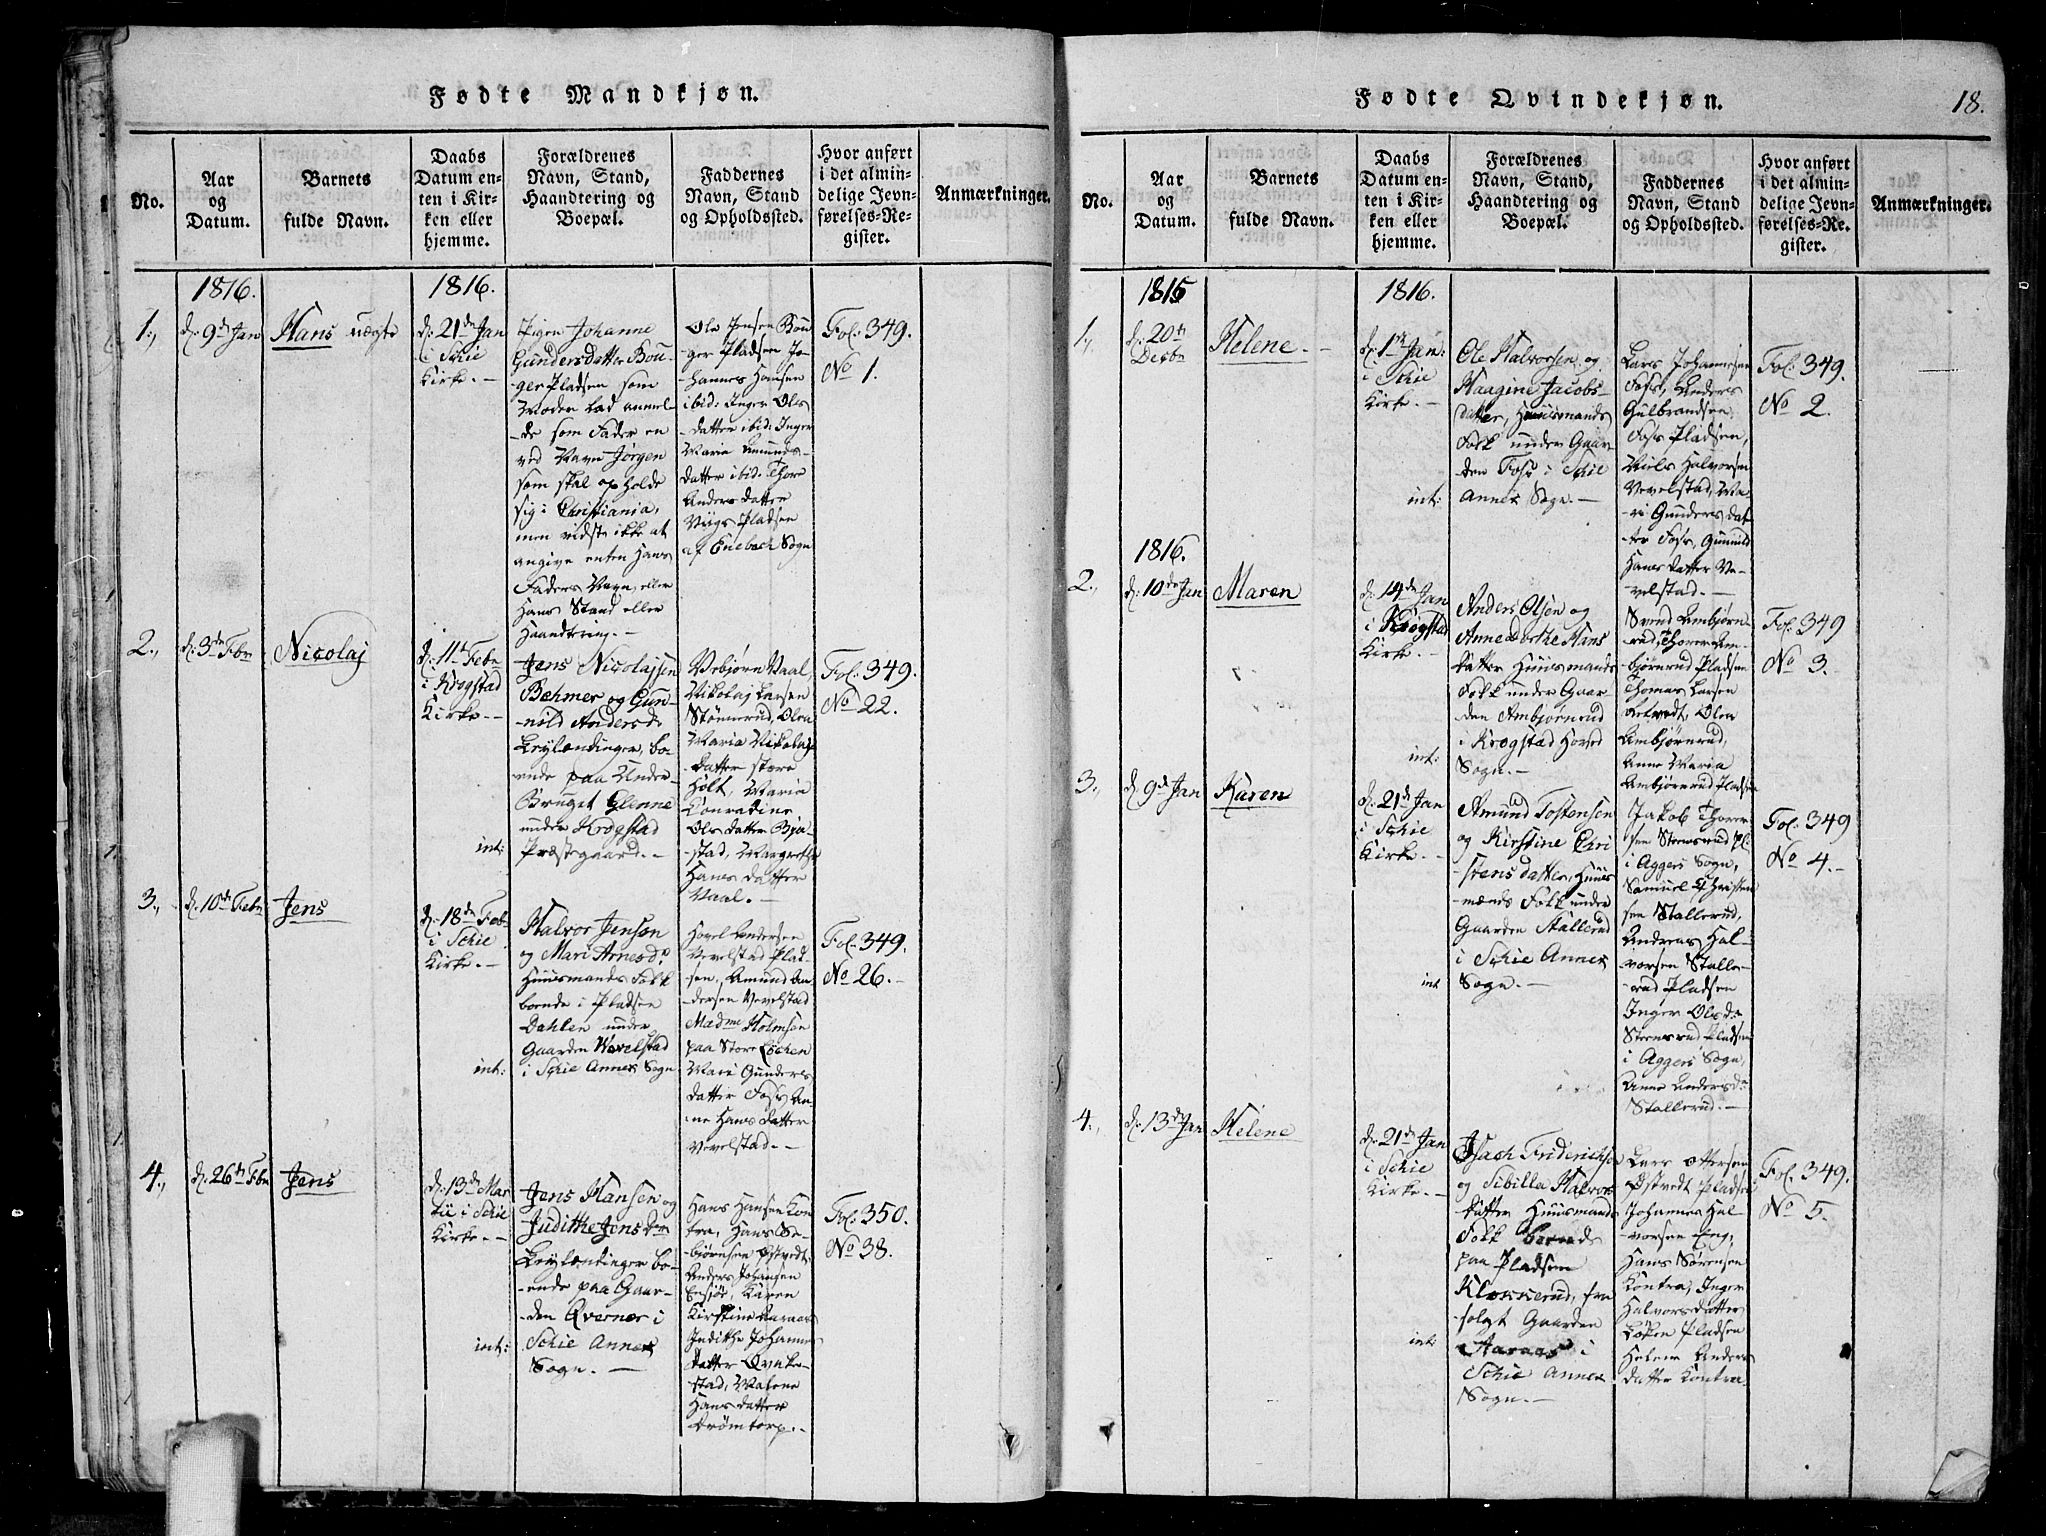 Fødte Mandkjøn.
No.
Aar
og
Datum.
Barnets
fulde Navn.
Daabs
Datum en-
ten i Kir-
ken eller
hjemme.
Forældrenes
Navn, Stand,
Haandtering og
Boepæl.
Faddernes
Navn, Stand
og Opholdssted.
Hvor anført
i det almin-
delige Jevn-
førelses-Re-
gister.
Anmærkninger.
1816.
1816.
1.,
d: 9de Jan
Hans uægte
d: 21de Jan
i Schie
Kirke.-
Pigen Johanne
Gundersdatter Bou-
ger Pladsen som
Moder lod anmel-
de som Fader en
ved Navn Jørgen
som skal opholde
sig i Christiania,
men vidste ikke at
angive enten Hans
Faders Navn, eller
Hans Stand eller
Haandtering.-
Ole Jensen Bou
ger Pladsen Jo-
hannes Hansen
ibid: Inger Ols
datter ibid: Inger
Maria Amunds-
datter ibid: Thore
Anders datter
Viigs Pladsen
af Enebach Sogn
Fol: 349.
No 1.
2.,
d: 3de Febr
Nicolaj
d: 11te Febr
i Krogstad
Kirke.-
int:
Jens Nicolajsen
Behmer og Gun-
nild Andersdr
Leylændinger, bo-
ende paa Under-
Bruget Glenne
under Krogstad
Præstegaard.-
Vebjørn Vaal,
Nikolaj Larsen
Stønnerud, Olea
Maria Nikolaj
datter store
Holt, Maria
Conradine
Ols datter Bja-
stad, Margrethe
Hans datter
Vaal.-
Fol: 349.
No 22.
3.,
d. 10de Febr
Jens
d. 18de Feb
i Schie
Kirke.-
int:
Halvor Jenson
og Mari Arnesdr
Huusmands Folk
boende i Pladsen
Dahlen under
Gaarden Wevelstad
i Schie Annex Sogn
Hovel Andersen
Vevelstad Plad-
sen, Amund An-
dersen Vevelstad
Madme Holmsen
paa Store
Mari Gunders
datter Foss An-
ne Hans datter
Vevelstad.-
Fol: 349.
No 26.-
4.,
d. 26te Febr
Jens
d. 13de Mar
tii i Schie
Kirke.-
int:
Jens Hansen og
Judithe Jens dr
Leylændinger bo-
ende paa Gaar-
den Qvernær i
Schie Annex
Sogn.-
Hans Hansen Kon
tra, Hans
bjørnsen Østvedt,
Anders Johansen
Karen
Kirstine Aaraas
Judithe Johannes
datter
stad, Malene
Hans datter
Drømtorp.-
Fol: 350.
No 38.
Fødte Qvindekjøn.
18.
No.
Aar
og
Datum.
Barnets
fulde Navn.
Daabs
Datum en-
ten i Kir-
ken eller
hjemme.
Forældrenes
Navn, Stand,
Haandtering og
Boepæl.
Faddernes
Navn, Stand
og Opholdssted.
Hvor anført
i det almin-
delige Jevn-
førelses-Re-
gister.
Anmærkninger.
1815
1816.
1.,
d: 20te
Decbr
Helene.-
d: 1te Jan:
i Schie
Kirke.-
int:
Ole Halvorsen og
Haagine Jacobs-
datter, Huusmands
Folk under Gaar
den Foss i Schie
Annex Sogn.-
Lars Johannesen
Foss, Anders
Gulbrandsen
Foss Pladsen,
Niels Halvorsen
Vevelstad, Ma-
ri Gunders dat-
ter Foss, Gunnild
Hans datter Ve-
velstad.-
Fol: 349.
No 2.
1816.
2.,
d: 10de Jan
Maren
d: 14de Jan
i Krogstad
Kirke.-
int:
Anders Olsen og
Anne Dorthe Hans
datter Huusmands
Folk under Gaar
den Ambjørnrud
i Krogstad Hoved
Sogn.-
Svend Ambjørn-
rud, Thore Am-
bjørnrud Pladsen
Thomas Larsen
Olea
Ambjørnrud,
Anne Maria
Ambjørnrud Pladsen
Fol: 349
No 3.-
3.,
d: 9de Jan
Karen
d: 21de Jan
i Schie
Kirke.-
int
Amund Tostensen
og Kirstine Chri
stens datter, Huus
mands Folk under
Gaarden Stallerud
i Schie Annex
Sogn.-
Jakob Thorer-
sen Steensrud Pl:
i Aggers Sogn,
Samuel Christen
sen Stallerud,
Andreas Hal-
vorsen Stalle-
rud Pladsen
Inger Olsdr
Steensrud Pladsen
i Aggers Sogn,
Anne Andersdr
Stallerud.-
Fol: 349
No 4.-
4.,
d: 13de Jan
Helene
d: 21de Jan
i Schie
Kirke.-
int:
Isach Friderichsen
og Sibilla Halvors
datter Huusmands
Folk boende
paa Pladsen
Klokkerud, fra
solgt Gaarden
Aaraas i
Schie Annex
Sogn.-
Lars Ottersen
Østvedt Pladsen
Johannes Hal-
vorsen Eng,
Hans Sørensen
Kontra, Inger
Halvors datter
Løken Pladsen
Helene Anders
datter Kontra.-
Fol. 349.
No 5.-